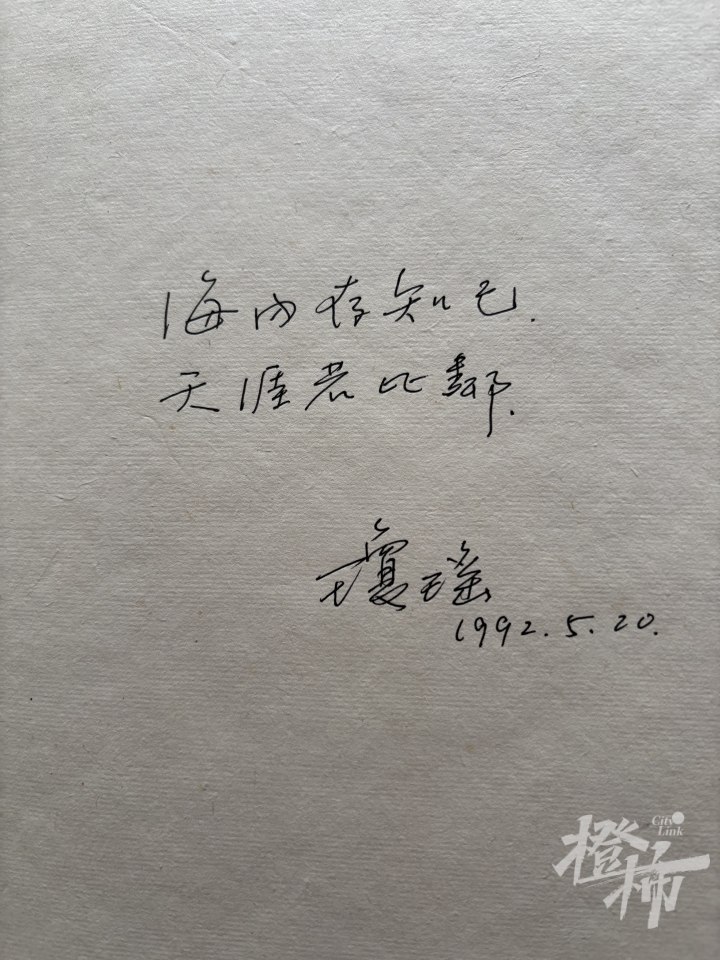 海内存知己.
天涯若比鄰.
瓊瑤
1992.5.20.
City Link
橙柿